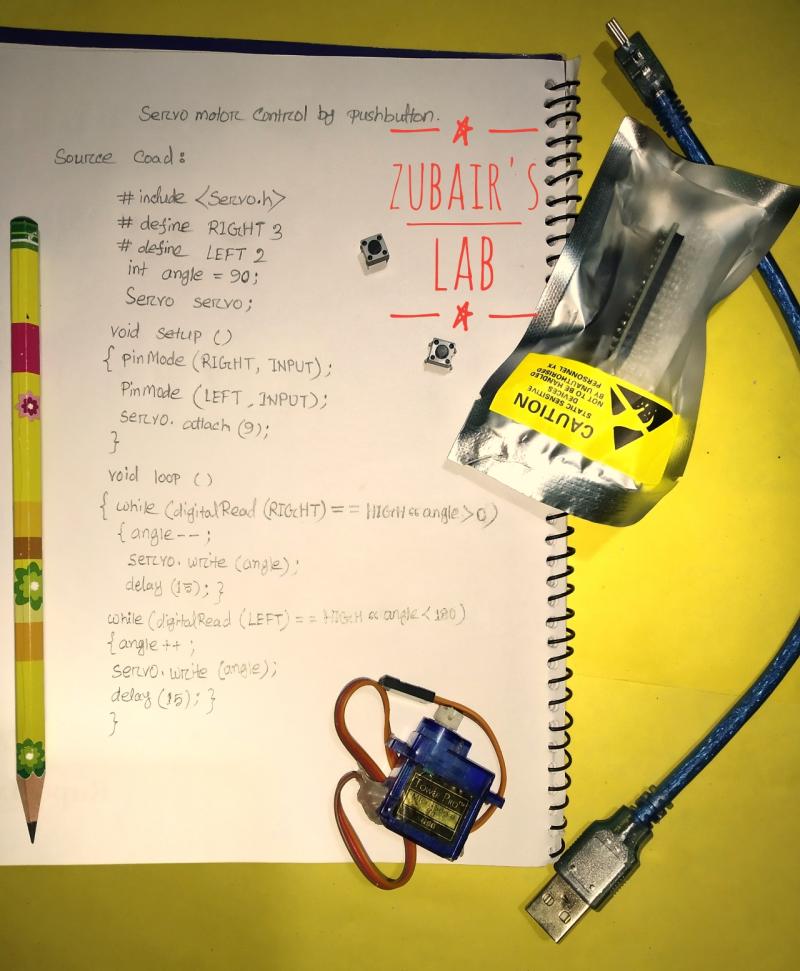 Servo motor control by pushbutton.
Source Coad:
# include <Servo.h>
# define RIGHT 3
# define LEFT 2
int angle = 90;
Servo servo;
void setup ()
{ pinMode (RIGHT, INPUT);
PinMode (LEFT, INPUT);
servo. attach (9);
}
void loop ()
{ while (digitalRead (RIGHT) == HIGH && angle > 0)
{ angle --;
servo. write (angle);
delay (15); }
while (digitalRead (LEFT) == HIGH && angle < 180)
{ angle ++ ;
servo. write (angle);
delay (15); }
}
ZUBAIR'S
LAB
CAUTION
STATIC SENSITIVE
DEVICES
NOT TO BE HANDLED
BY UNAUTHORISED
PERSONNEL YX
Tower Pro™